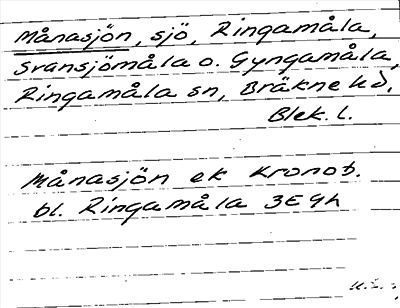 Månasjön, sjö, Ringamåla,
Svansjömåla o. Gyngamåla,
Ringamåla sn, Bräkne hd,
Blek. l.
Månasjön ek kronob.
bl. Ringamåla 3E9h